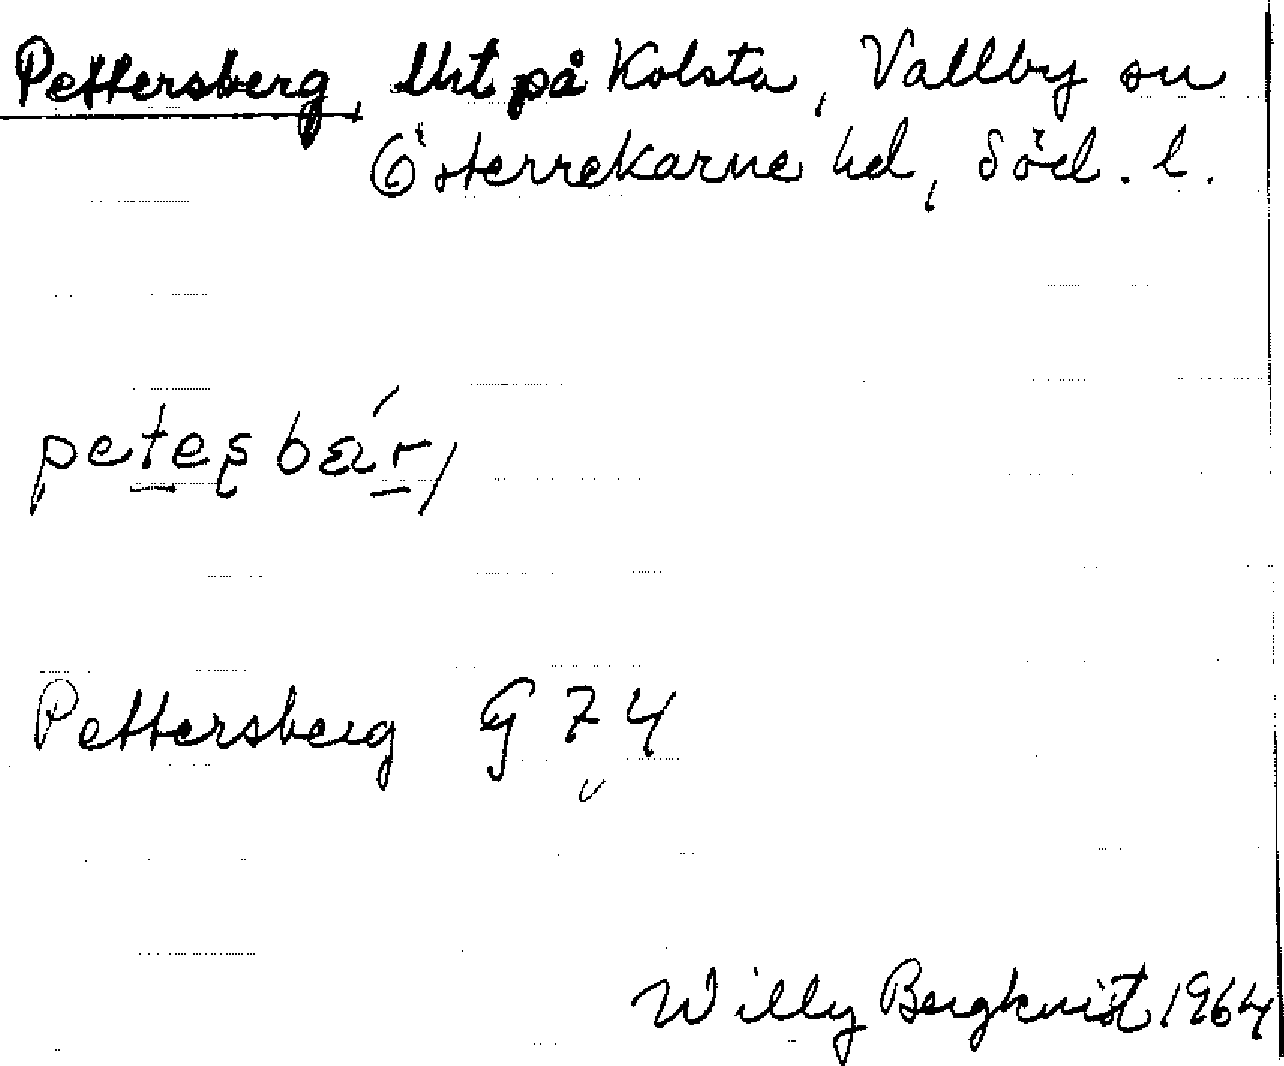 Pettersberg, Utt på Kolsta, Vallby sn
Österrekarne hd, Söd. l.
petes bǽr/
Pettersberg G 74
Willy Bergkvist 1964